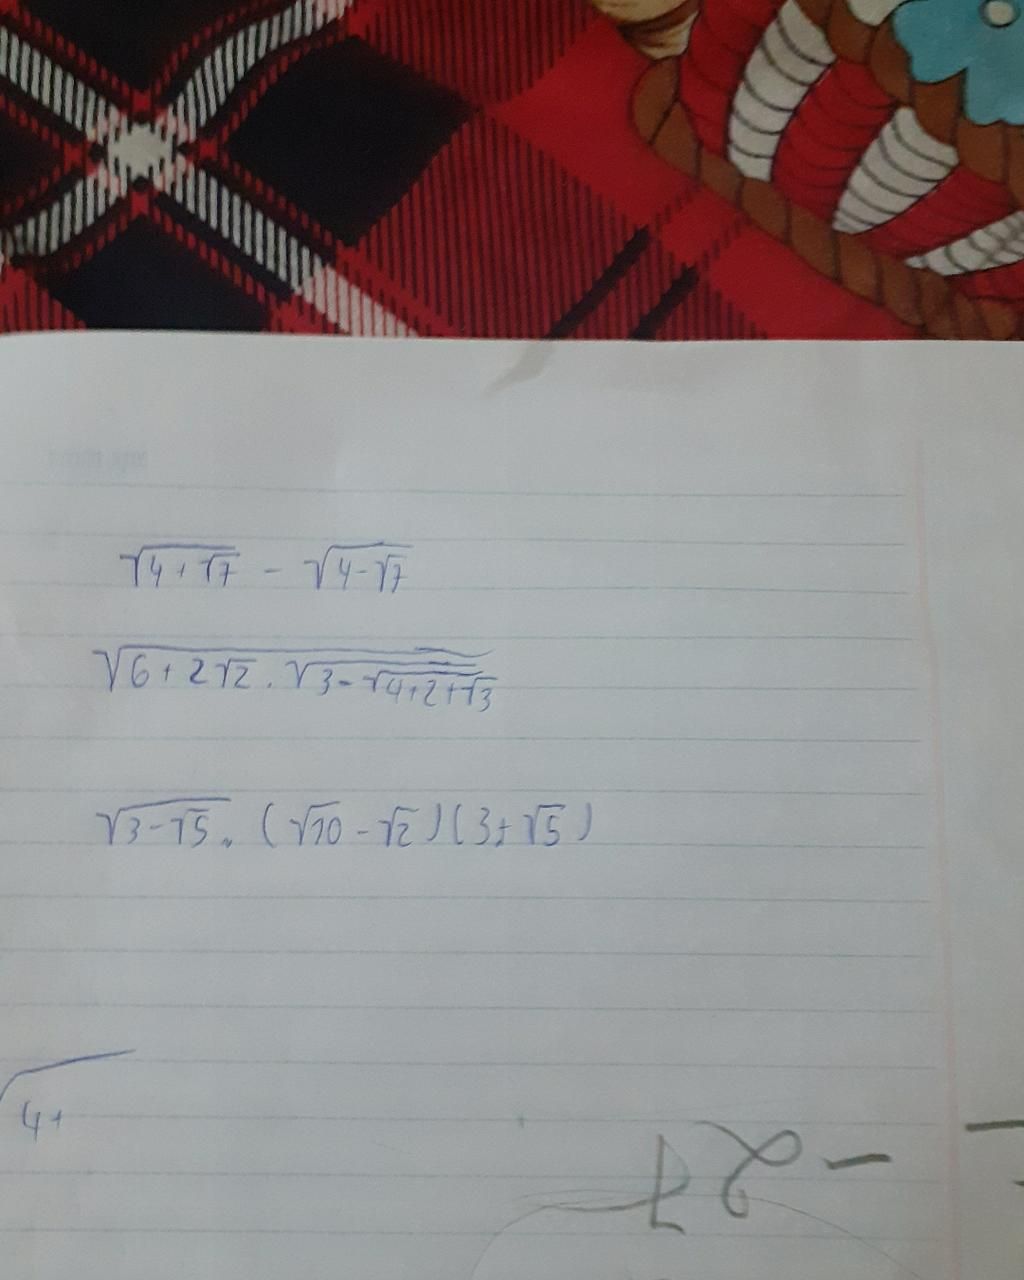 √(4+√7) - √(4-√7)
√(6+2√2 . √(3-√(4+2+√3)))
√(3-√5) . (√10 - √2)(3+√5)
√4+